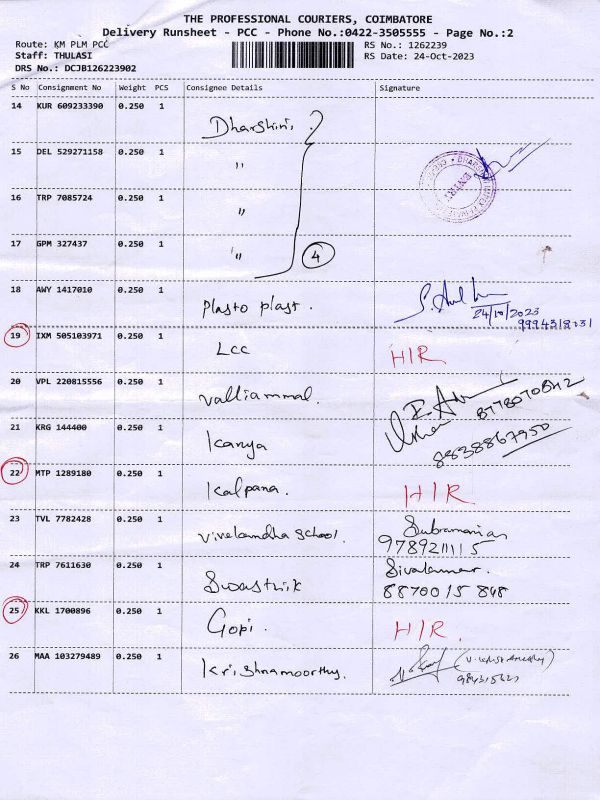 THE PROFESSIONAL COURIERS, COIMBATORE
Delivery Runsheet - PCC - Phone No.:0422-3505555 - Page No.:2
Route: KM PLM PCC
Staff: THULASI
DRS No.: DCJB126223902
RS No.: 1262239
RS Date: 24-Oct-2023
S No Consignment No Weight PCS Consignee Details Signature
14 KUR 609233390 0.250 1 Dharshini,
15 DEL 529271158 0.250 1 "
16 TRP 7085724 0.250 1 "
17 GPM 327437 0.250 1 " 4
18 AWY 1417010 0.250 1 Plasto plast.
24/10/2023
19 IXM 505103971 0.250 1 LCC H/R
20 VPL 220815556 0.250 1 Valliammal.
21 KRG 144400 0.250 1 Kanya 8838867950
22 MTP 1289180 0.250 1 Kalpana. H/R
23 TVL 7782428 0.250 1 school. Subramanian
9789211115
24 TRP 7611630 0.250 1 Swasthik Sivakumar
8870015 848
25 KKL 1700896 0.250 1 Gopi. H/R.
26 MAA 103279489 0.250 1 Krishnamoorthy.